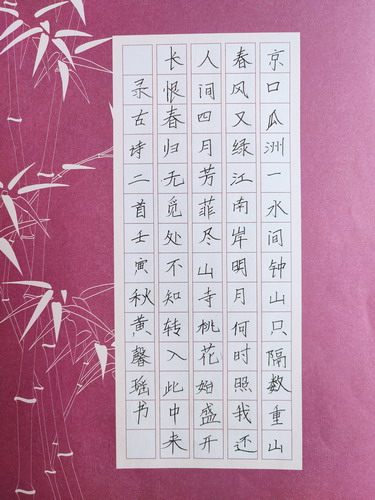 京口瓜洲一水间钟山只隔数重山
春风又绿江南岸明月何时照我还
人间四月芳菲尽山寺桃花始盛开
长恨春归无觅处不知转入此中来
录古诗二首壬寅秋黄馨瑶书